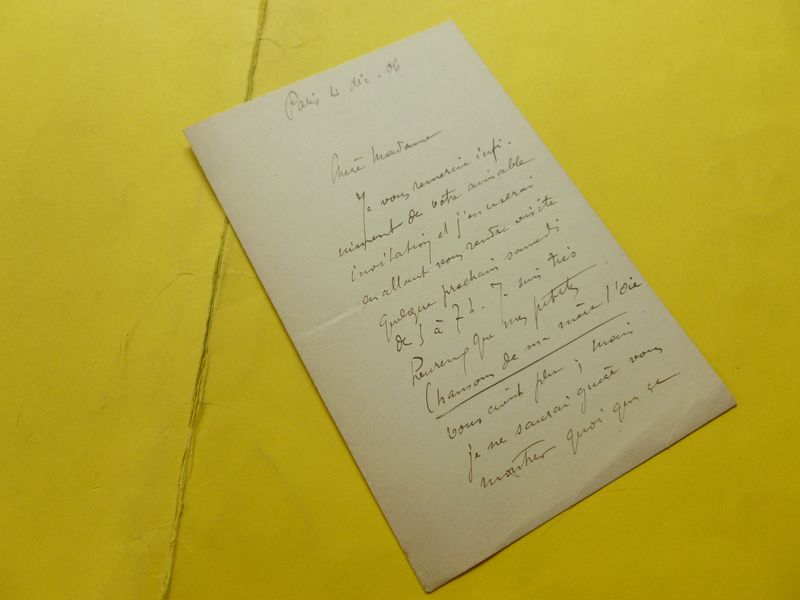 Paris 4 déc. 06
Chère Madame
Je vous remercie infi-
niment de votre aimable
invitation et j'en userai
en allant vous rendre visite
quelque prochain samedi
de 5 à 7 h. Je suis très
heureux que mes petites
Chansons de ma mère l'Oie
vous aient plu ; mais
je ne saurai guère vous
montrer quoi que ce